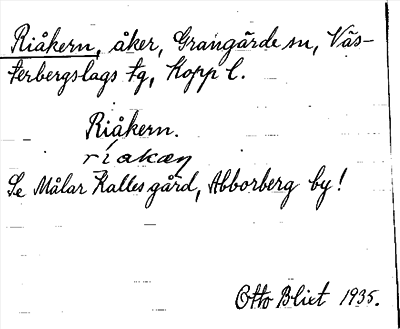 Riåkern, åker, Grangärde sn, Väs-
terbergslags tg, Kopp l.
Riåkern.
ríakæn
Se Målar Kalles gård, Abborberg by!
Otto Blixt 1935.